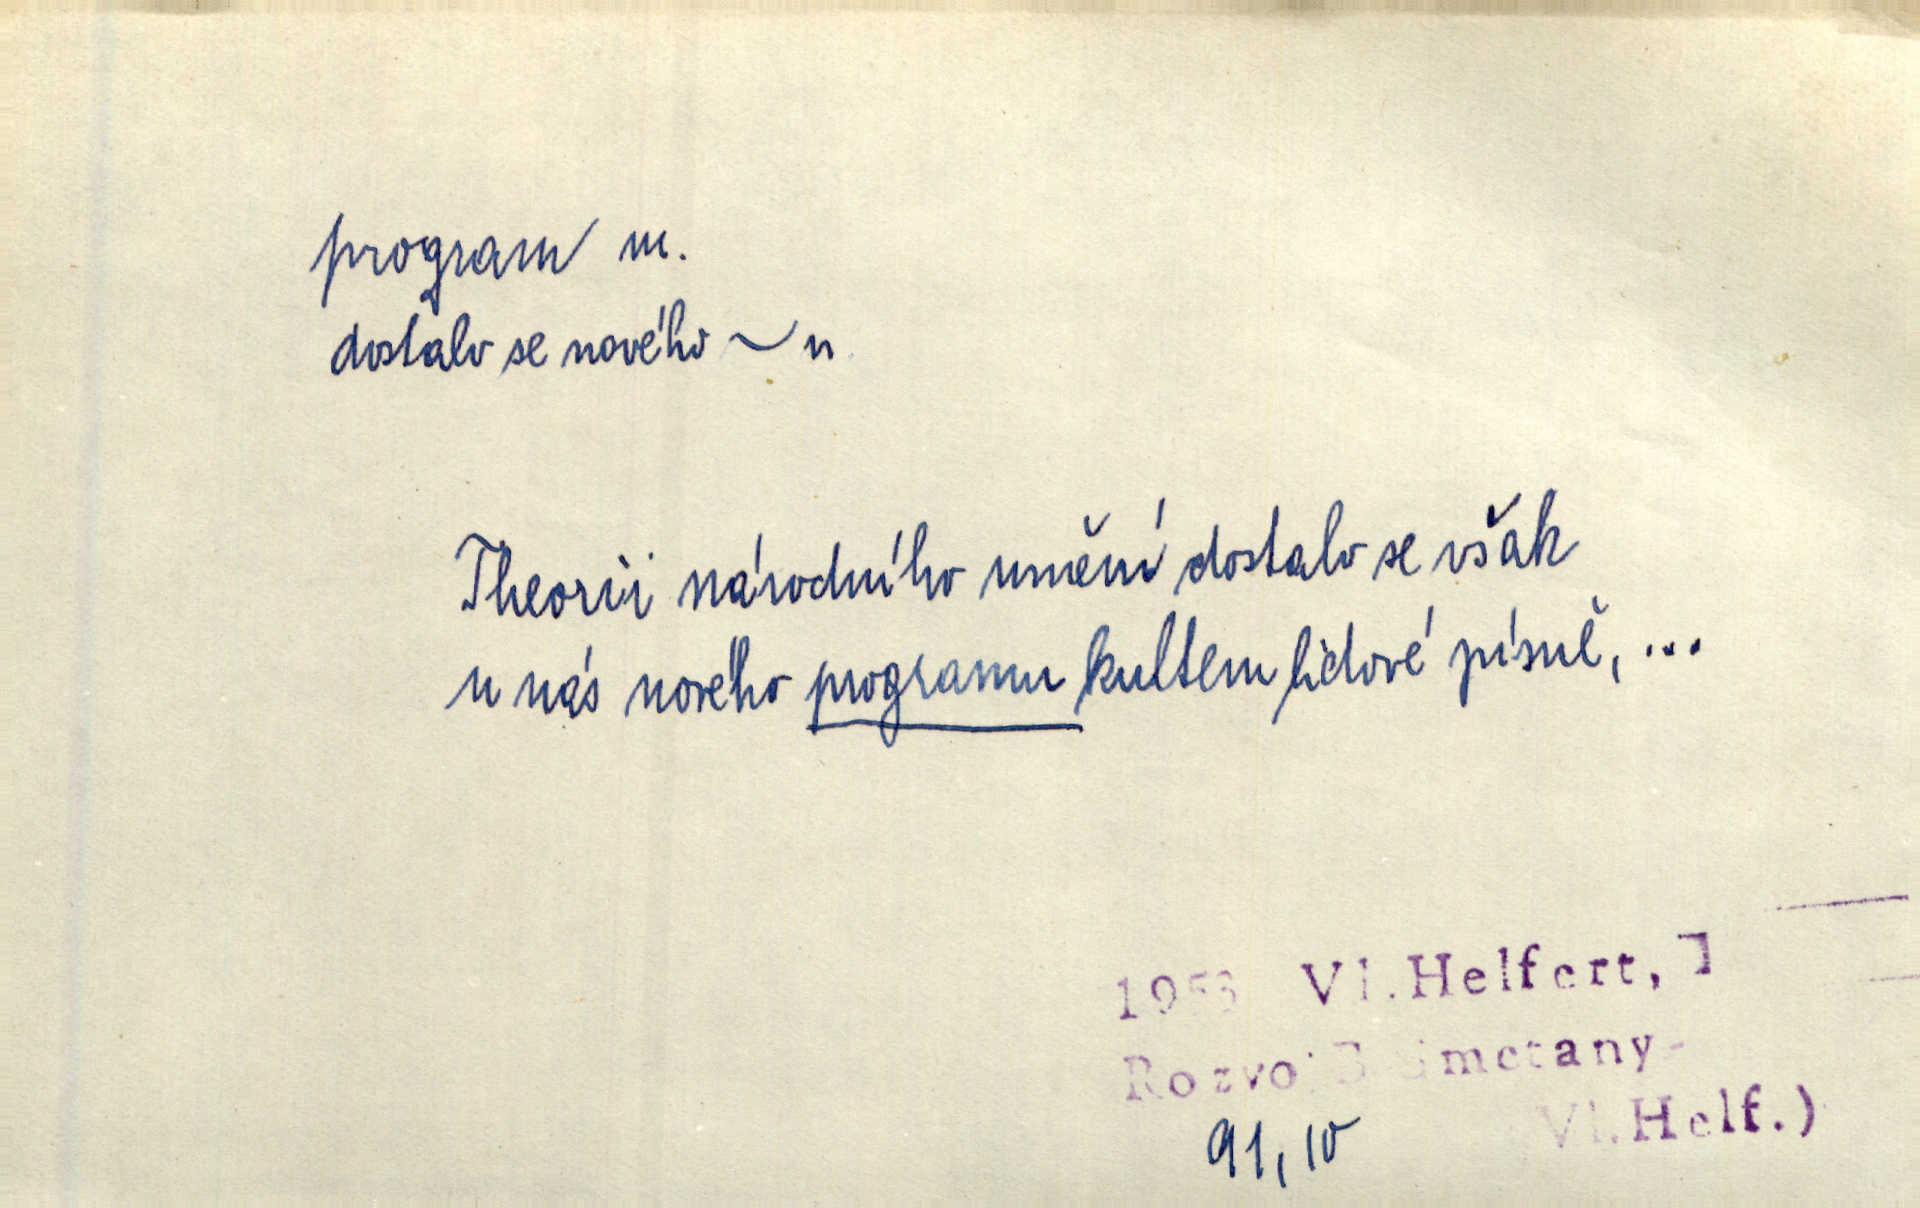 program m.
dostalo se nového ~ u
Theorii národního umění dostalo se však
u nás nového programu kultem lidové písně, ...
1953 Vl. Helfert,
Rozvoj B Smetany-
Vl. Helf.)
91, 10